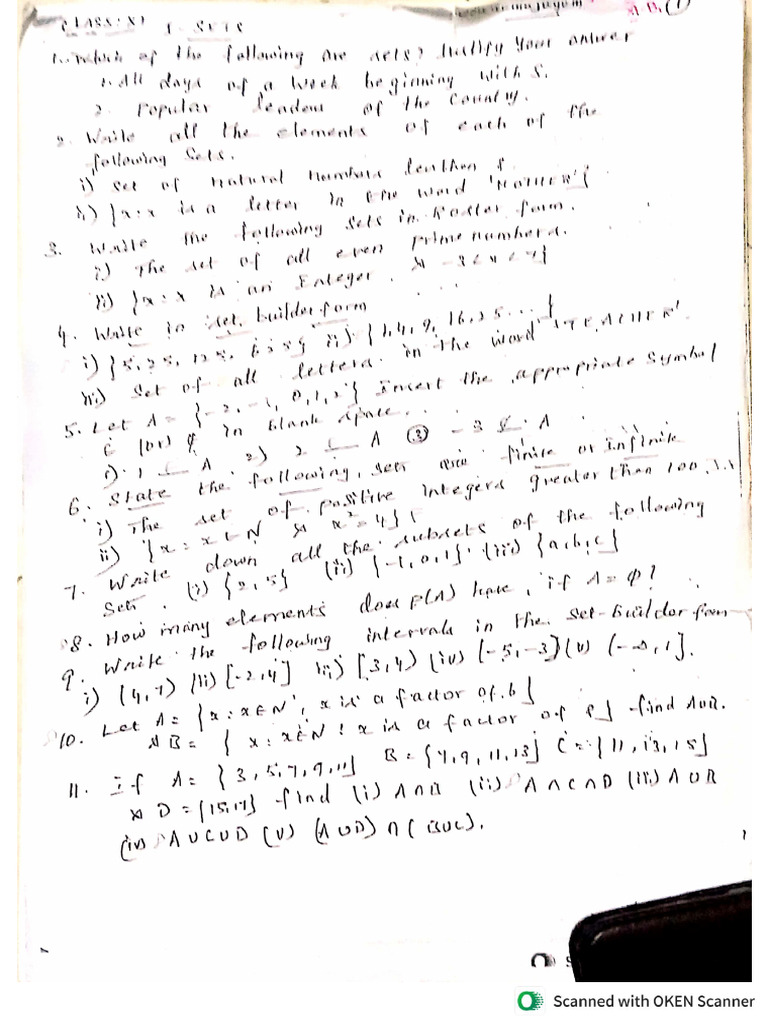 CLASS: XI 1. SETS
1. Which of the following are sets? Justify your answer
1. All days of a week beginning with S.
2. Popular leaders of the Country.
2. Write all the elements of each of the
following Sets.
i) Set of natural numbers lessthan 8
ii) {x:x is a letter in the word 'MOTHER'}
3. Write the following Sets in Roster form.
i) The set of all even prime numbers.
ii) {x:x is an Integer. & -3<x<7}
4. Write in set builder form
i) {5,25,125,625} ii) {1,4,9,16,25...}
iii) Set of all letters in the word 'TEACHER'
5. Let A = {-2,-1,0,1,2} Insert the appropriate Symbol
∈ (or) ∉ in blank space.
1) 1 A 2) 2 A ③ -3 A
6. State the following sets are finite or infinite
i) The set of positive integers greater than 100.
ii) {x: x∈N & x²=4}
7. Write down all the subsets of the following
Sets. (i) {2,5} (ii) {-1,0,1}. (iii) {a,b,c}
8. How many elements does P(A) have, if A=ϕ?
9. Write the following intervals in the set-builder form
i) (4,7) (ii) [-2,4] iii) [3,4) (iv) (-5,-3] (v) (-∞,1].
10. Let A = {x:x∈N, x is a factor of 6}
& B = {x:x∈N: x is a factor of 8} find AUB.
11. If A = {3,5,7,9,11} B = {7,9,11,13} C = {11,13,15}
& D = {15,17} find (i) A∩B (ii) A∩C∩D (iii) AUB
(iv) AUCUD (v) (AUD)∩(BUC).
Scanned with OKEN Scanner